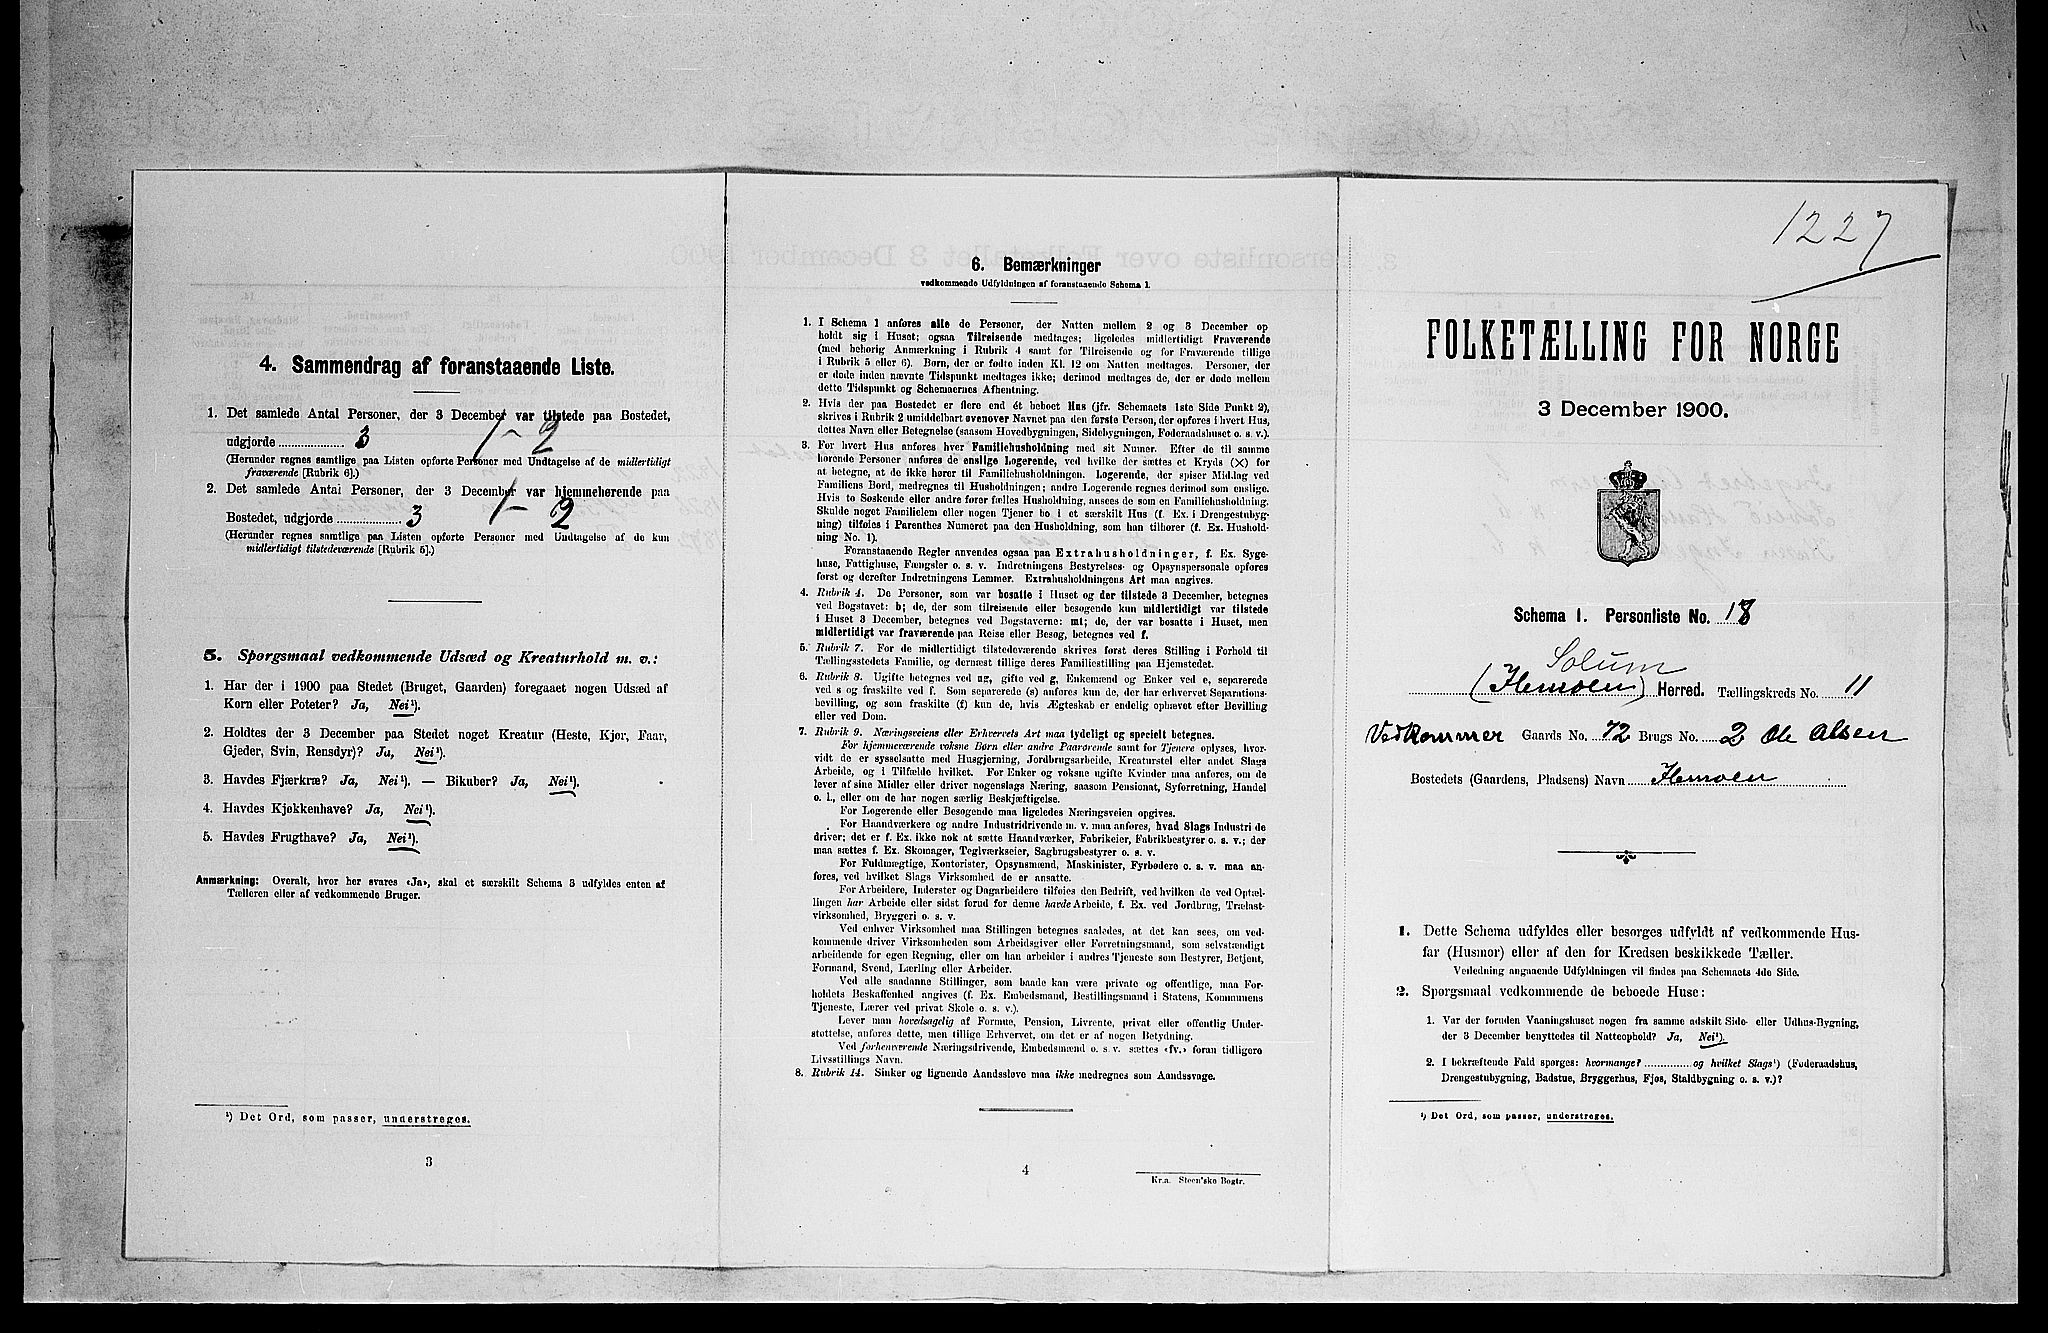 4. Sammendrag af foranstaaende Liste.
1. Det samlede Antal Personer, der 3 December var tilstede paa Bostedet,
udgjorde 3 1 - 2
(Herunder regnes samtlige paa Listen opførte Personer med Undtagelse af de midlertidigt
fraværende [Rubrik 6].)
2. Det samlede Antal Personer, der 3 December var hjemmehørende paa
Bostedet, udgjorde 3 1 - 2
(Herunder regnes samtlige paa Listen opførte Personer med Undtagelse af de kun
midlertidigt tilstedeværende [Rubrik 5].)
5. Spørgsmaal vedkommende Udsæd og Kreaturhold m. v.:
1. Har der i 1900 paa Stedet (Bruget, Gaarden) foregaaet nogen Udsæd af
Korn eller Poteter? Ja, Nei¹).
2. Holdtes der 3 December paa Stedet noget Kreatur (Heste, Kjør, Faar,
Gjeder, Svin, Rensdyr)? Ja, Nei¹).
3. Havdes Fjærkræ? Ja, Nei¹). — Bikuber? Ja, Nei¹).
4. Havdes Kjøkkenhave? Ja, Nei¹).
5. Havdes Frugthave? Ja, Nei¹).
Anmærkning: Overalt, hvor her svares «Ja», skal et særskilt Schema 3 udfyldes enten af
Tælleren eller af vedkommende Bruger.
¹) Det Ord, som passer, understreges.
3
6. Bemærkninger
vedkommende Udfyldningen af foranstaaende Schema 1.
1. I Schema 1 anføres alle de Personer, der Natten mellem 2 og 3 December op
holdt sig i Huset; ogsaa Tilreisende medtages; ligeledes midlertidigt Fraværende
(med behørig Anmærkning i Rubrik 4 samt for Tilreisende og for Fraværende tillige
i Rubrik 5 eller 6). Børn, der er fødte inden Kl. 12 om Natten medtages. Personer, der
er døde inden nævnte Tidspunkt medtages ikke; derimod medtages de, der er døde mellem
dette Tidspunkt og Schemaernes Afhentning.
2. Hvis der paa Bostedet er flere end ét beboet Hus (jfr. Schemaets 1ste Side Punkt 2),
skrives i Rubrik 2 umiddelbart ovenover Navnet paa den første Person, der opføres i hvert Hus,
dettes Navn eller Betegnelse (saasom Hovedbygningen, Sidebygningen, Føderaadshuset o. s. v.).
3. For hvert Hus anføres hver Familiehusholdning med sit Numer. Efter de til samme
hørende Personer anføres de enslige Logerende, ved hvilke der sættes et Kryds (×) for
at betegne, at de ikke hører til Familiehusholdningen. Logerende, der spiser Middag ved
Familiens Bord, medregnes til Husholdningen; andre Logerende regnes derimod som enslige.
Hvis to Søskende eller andre fører fælles Husholdning, ansees de som en Familiehusholdning.
Skulde noget Familielem eller nogen Tjener bo i et særskilt Hus (f. Ex. i Drengestubyg-
ning) tilføies i Parenthes Numeret paa den Husholdning, som han tilhører (f. Ex. Hushold-
ning No. 1).
Foranstaaende Regler anvendes ogsaa paa Extrahusholdninger, f. Ex. Syge-
huse, Fattighuse, Fængsler o. s. v. Indretningens Bestyrelses- og Opsynspersonale opføres
først og derefter Indretningens Lemmer. Extrahusholdningens Art maa angives.
4. Rubrik 4. De Personer, som var bosatte i Huset og der tilstede 3 December, betegnes
ved Bogstavet: b; de, der som tilreisende eller besøgende kun midlertidigt var tilstede
i Huset 3 December, betegnes ved Bogstaverne: mt; de, der var bosatte i Huset, men
midlertidigt var fraværende paa Reise eller Besøg, betegnes ved f.
5. Rubrik 7. For de midlertidigt tilstedeværende skrives først deres Stilling i Forhold til
Tællingsstedets Familie, og dernæst tillige deres Familiestilling paa Hjemstedet.
6. Rubrik 8. Ugifte betegnes ved ug, gifte ved g, Enkemænd og Enker ved e, separerede
ved s og fraskilte ved f. Som separerede (s) anføres kun de, der har erhvervet Separations-
bevilling, og som fraskilte (f) kun de, hvis Ægteskab er endelig ophævet efter Bevilling
eller ved Dom.
7. Rubrik 9. Næringsveiens eller Erhvervets Art maa tydeligt og specielt betegnes.
For hjemmeværende voksne Børn eller andre Paarørende samt for Tjenere oplyses, hvor-
vidt de er sysselsatte med Husgjerning, Jordbrugsarbeide, Kreaturstel eller andet Slags
Arbeide, og i Tilfælde hvilket. For Enker og voksne ugifte Kvinder maa anføres, om de
lever af sine Midler eller driver nogenslags Næring, saasom Pensionat, Syforretning, Handel
o. l., eller om de har nogen særlig Beskjæftigelse.
For Logerende eller Besøgende maa ligeledes Næringsveien opgives.
For Haandværkere og andre Industridrivende m. v. maa anføres, hvad Slags Industri de
driver; det er f. Ex. ikke nok at sætte Haandværker, Fabrikeier, Fabrikbestyrer o. s. v.; der
maa sættes f. Ex. Skomager, Teglværkseier, Sagbrugsbestyrer o. s. v.
For Fuldmægtige, Kontorister, Opsynsmænd, Maskinister, Fyrbødere o. s. v. maa an-
føres, ved hvilket Slags Virksomhed de er ansatte.
For Arbeidere, Inderster og Dagarbeidere tilføies den Bedrift, ved hvilken de ved Optæl-
lingen har Arbeide eller sidst forud for denne havde Arbeide, f. Ex. ved Jordbrug, Trælast-
virksomhed, Bryggeri o. s. v.
Ved enhver Virksomhed maa Stillingen betegnes saaledes, at det kan sees, om ved-
kommende driver Virksomheden som Arbeidsgiver eller Forretningsmand, som selvstændigt
arbeidende for egen Regning, eller om han arbeider i andres Tjeneste som Bestyrer, Betjent,
Formand, Svend, Lærling eller Arbeider.
Ved alle saadanne Stillinger, som baade kan være private og offentlige, maa For-
holdets Beskaffenhed angives (f. Ex. Embedsmand, Bestillingsmand i Statens, Kommunens
Tjeneste, Lærer ved privat Skole o. s. v.).
Lever man hovedsagelig af Formue, Pension, Livrente, privat eller offentlig Under-
støttelse, anføres dette, men tillige Erhvervet, om det er af nogen Betydning.
Ved forhenværende Næringsdrivende, Embedsmænd o. s. v. sættes «fv.» foran tidligere
Livsstillings Navn.
8. Rubrik 14. Sinker og lignende Aandssløve maa ikke medregnes som Aandssvage.
4
Kr.a. Steen'ske Bogtr.
1227
FOLKETÆLLING FOR NORGE
3 December 1900.
Schema 1. Personliste No. 18
Solum
(Klemoen) Herred. Tællingskreds No. 11
Vedkommer Gaards No. 72 Brugs No. 2 Ole Alsen
Bostedets (Gaardens, Pladsens) Navn Klemoen
1. Dette Schema udfyldes eller besørges udfyldt af vedkommende Hus-
far (Husmor) eller af den for Kredsen beskikkede Tæller.
Veiledning angaaende Udfyldningen vil findes paa Schemaets 4de Side.
2. Spørgsmaal vedkommende de beboede Huse:
1. Var der foruden Vaaningshuset nogen fra samme adskilt Side- eller Udhus-Bygning,
der 3 December benyttedes til Natteophold? Ja, Nei¹).
2. I bekræftende Fald spørges: hvormange? og hvilket Slags¹) (Føderaadshus,
Drengestubygning, Badstue, Bryggerhus, Fjøs, Staldbygning o. s. v.)?
¹) Det Ord, som passer, understreges.